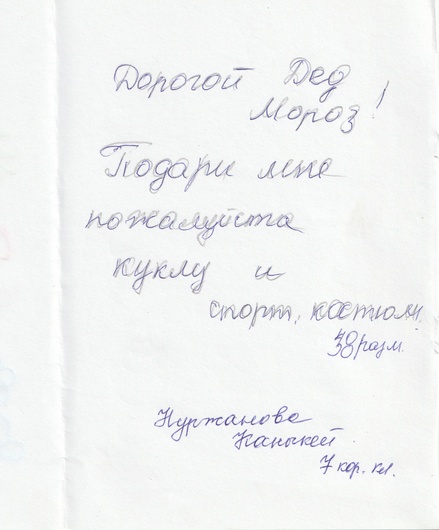 Дорогой Дед
Мороз!
Подари мне
пожалуйста
куклу и
спорт. костюм.
разм.
Нуржанова
Каныкей
7 кор. кл.